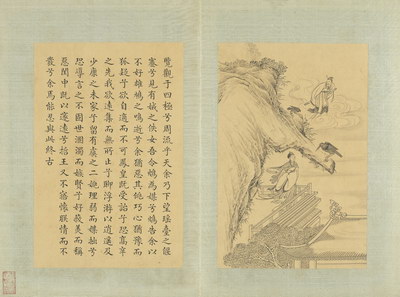 覽觀于四極兮周流乎天余乃下望瑤臺之偃
蹇兮見有娀之佚女吾令鴆為媒兮鴆告余以
不好雄鳩之鳴逝兮余猶惡其佻巧心猶豫而
狐疑兮欲自適而不可鳳皇既受詒兮恐高辛
之先我欲遠集而無所止兮聊浮游以逍遙及
少康之未家兮留有虞之二姚理弱而媒拙兮
恐導言之不固世溷濁而嫉賢兮好蔽美而稱
惡閨中既以邃遠兮哲王又不寤懷朕情而不
發兮余焉能忍與此終古